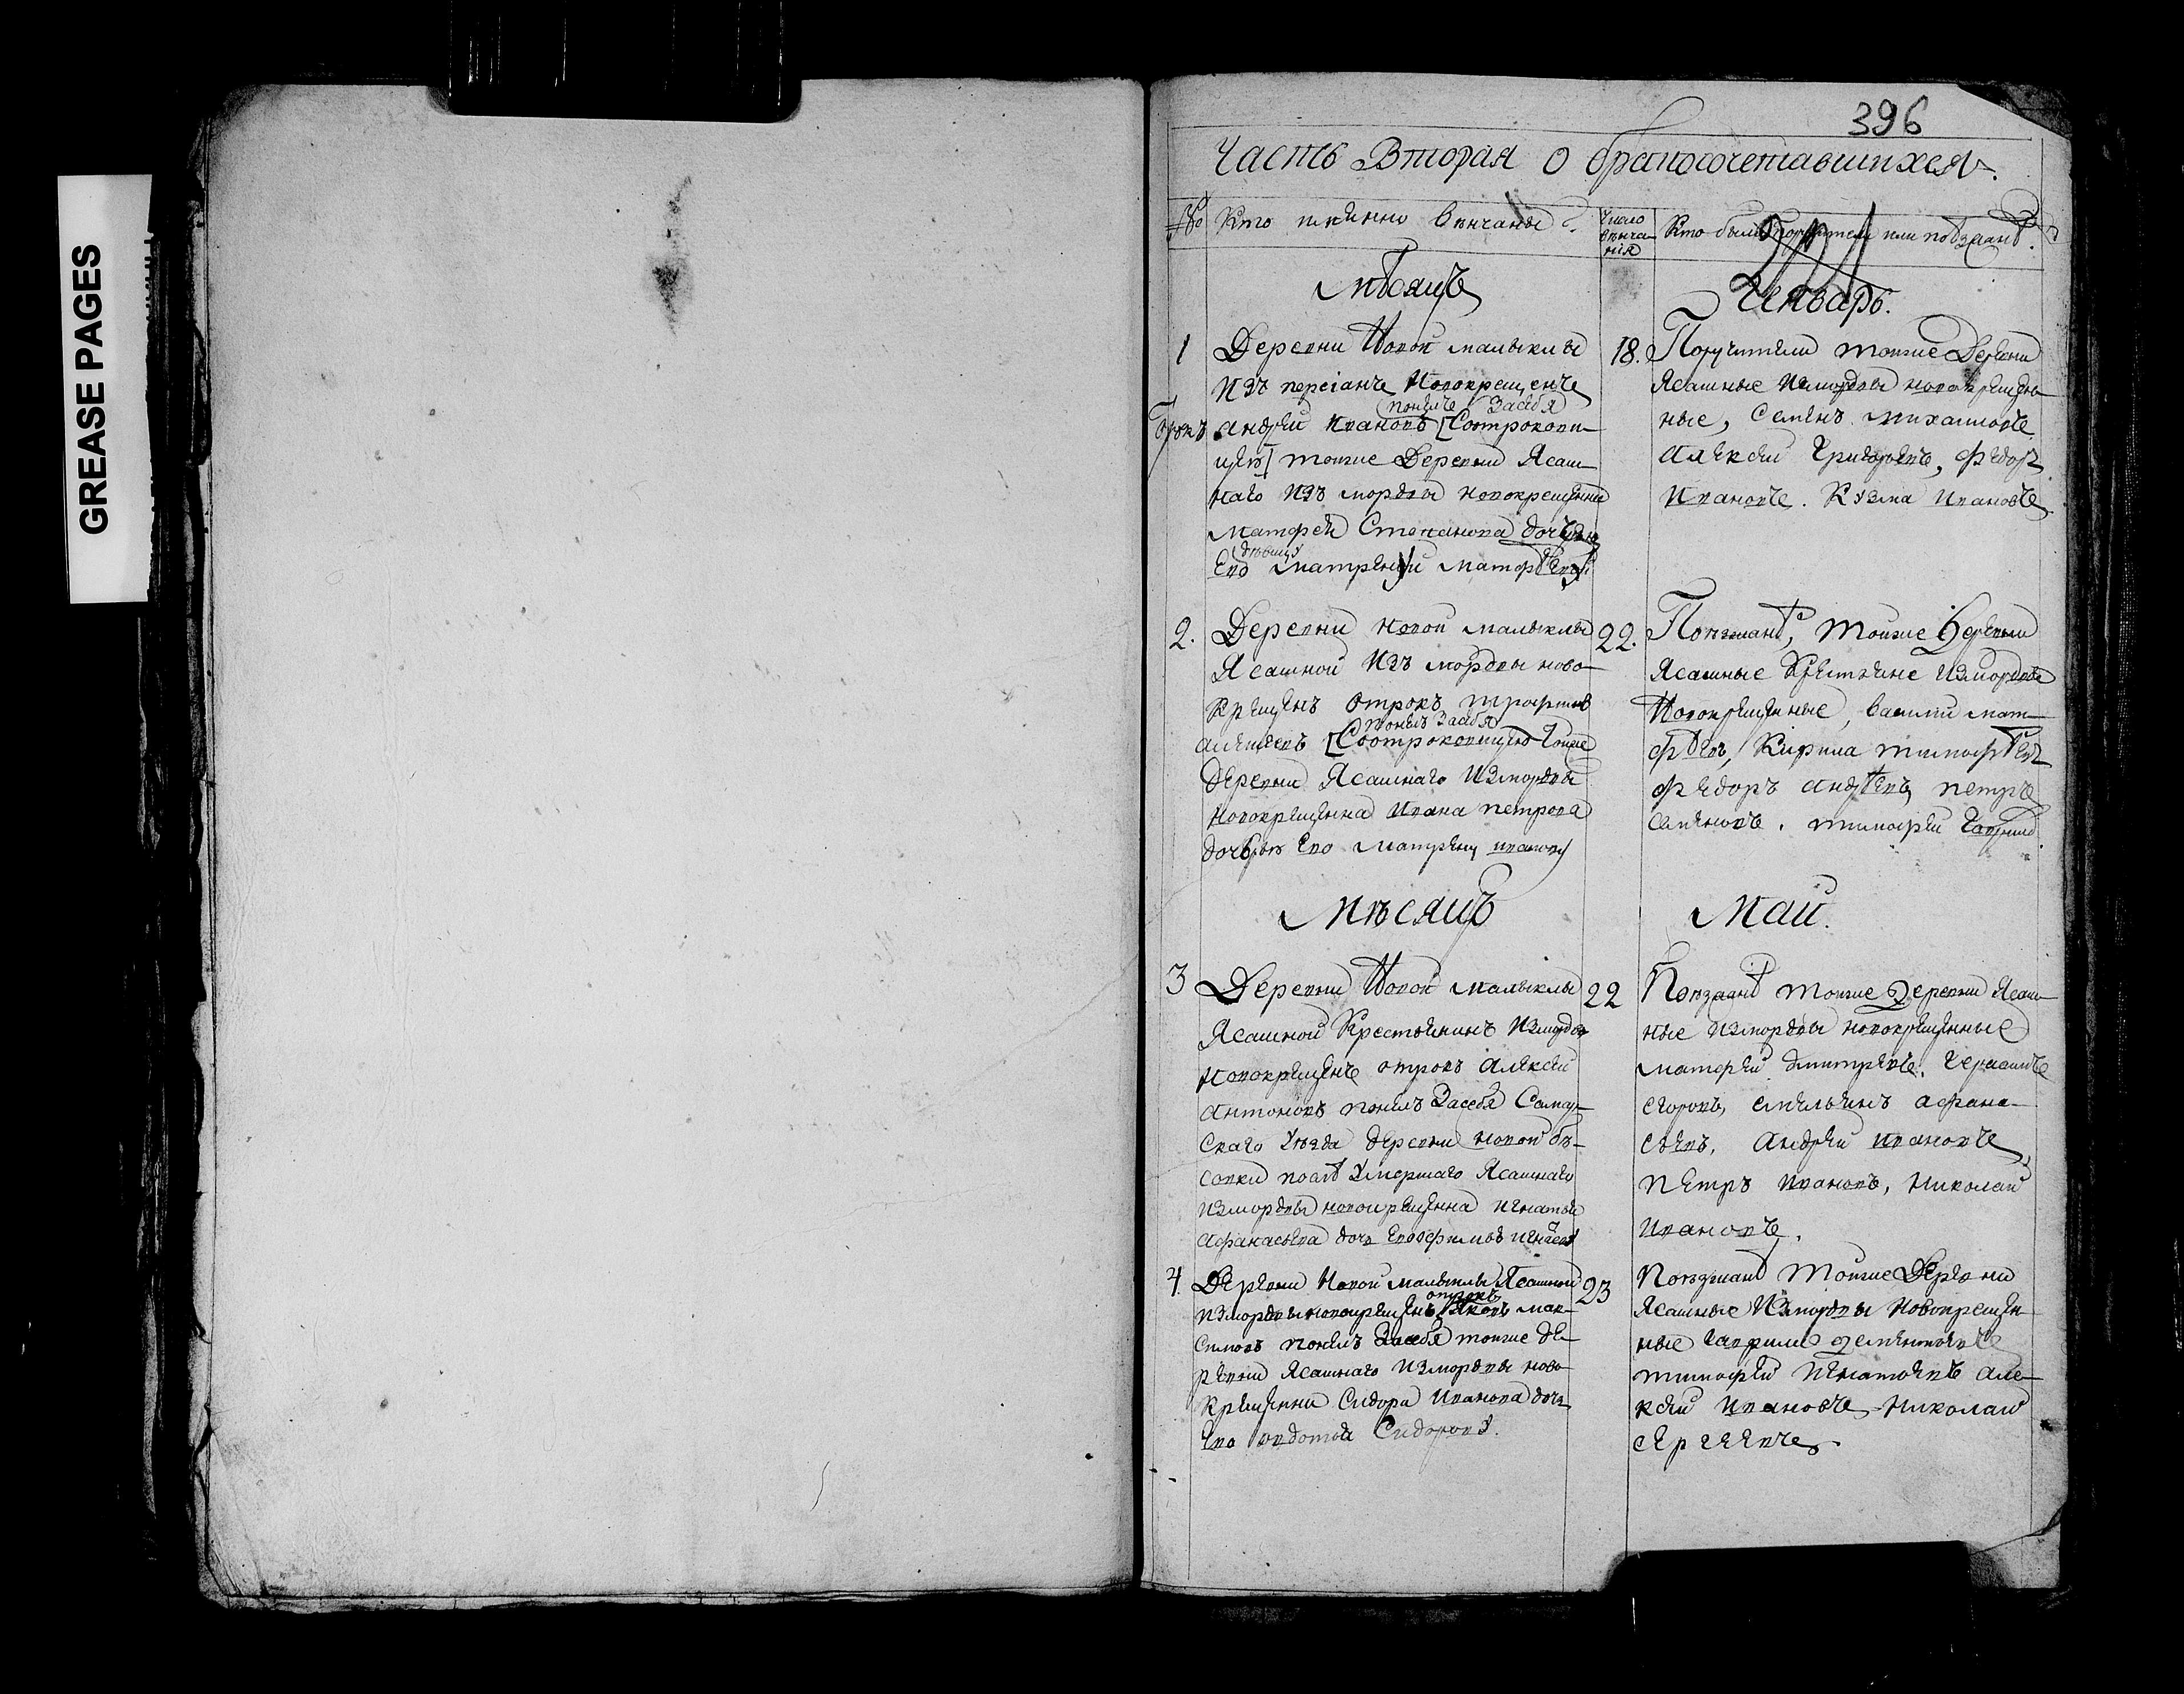 GREASE PAGES
396
Часть Вторая о бракосочетавшихся.
№ Кто имянно венчаны
Число венча-
ния
Кто были поручители или поезжанѣ
Мѣсяцъ
Генварь.
1
Деревни Новой малыклы
изъ персіанъ Новокрещенъ
понялъ Засебя
Отрокъ Андрей Ивановъ [Соотрокови-
цею] тоиже Деревни Ясаш-
наго изъ мордвы новокрещенна
Матфея Степанова дочерью
девицу
Ево Матрену Матфѣеву
18.
Поручители тоиже Деревни
Ясашные измордвы новокрещен-
ные, Семенъ Михаиловъ
Алексей Григорьевъ, Федоръ
Ивановъ. Кузма Ивановъ
2.
Деревни новой малыклы
Ясашной изъ мордвы ново-
крещенъ отрокъ Трофимъ
понялъ Засебя
[Соотроковицею тоиже
Деревни Ясашнаго измордвы
новокрещенна Ивана Петрова
дочерь Ево Матрену Иванову
22.
Поезжанѣ, тоиже Деревни
Ясашные Крестьяне измордвы
Новокрещенные, Василий Мат-
фѣевъ, Кирила Тимофѣевъ
Федоръ Андрѣевъ, Петръ
Семеновъ. Тимофей Гаврилов
Мѣсяцъ
Май.
3
Деревни Новой Малыклы
Ясашной Крестьянинъ измордвы
Новокрещенъ отрокъ Алексей
Антоновъ понялъ Засебя Самар-
скаго Уѣзда деревни новой бе-
совки послѣ Умершаго Ясашнаго
измордвы новокрещенна Игнатья
Афанасьева дочь Ево
22
Поезжанѣ тоиже Деревни Ясаш-
ные измордвы новокрещенные
Матфей Дмитревъ. Герасимъ
Егоровъ, Емельянъ Афана-
сьевъ, Андрей Ивановъ,
Петръ Ивановъ, Николай
Ивановъ.
4.
Деревни Новой Малыклы Ясашной
отрокъ
измордвы новокрещенъ Яковъ Мак-
симовъ понялъ Засебя тоиже де-
ревни Ясашнаго измордвы ново-
крещенна Сидора Иванова дочь
Ево Авдотья Сидорову.
23
Поезжанѣ тоиже Деревни
Ясашные измордвы Новокрещен-
ные Гаврило Дементьевъ
Тимофей Игнатьевъ Але-
ксей Ивановъ Николай
Сергеевъ.